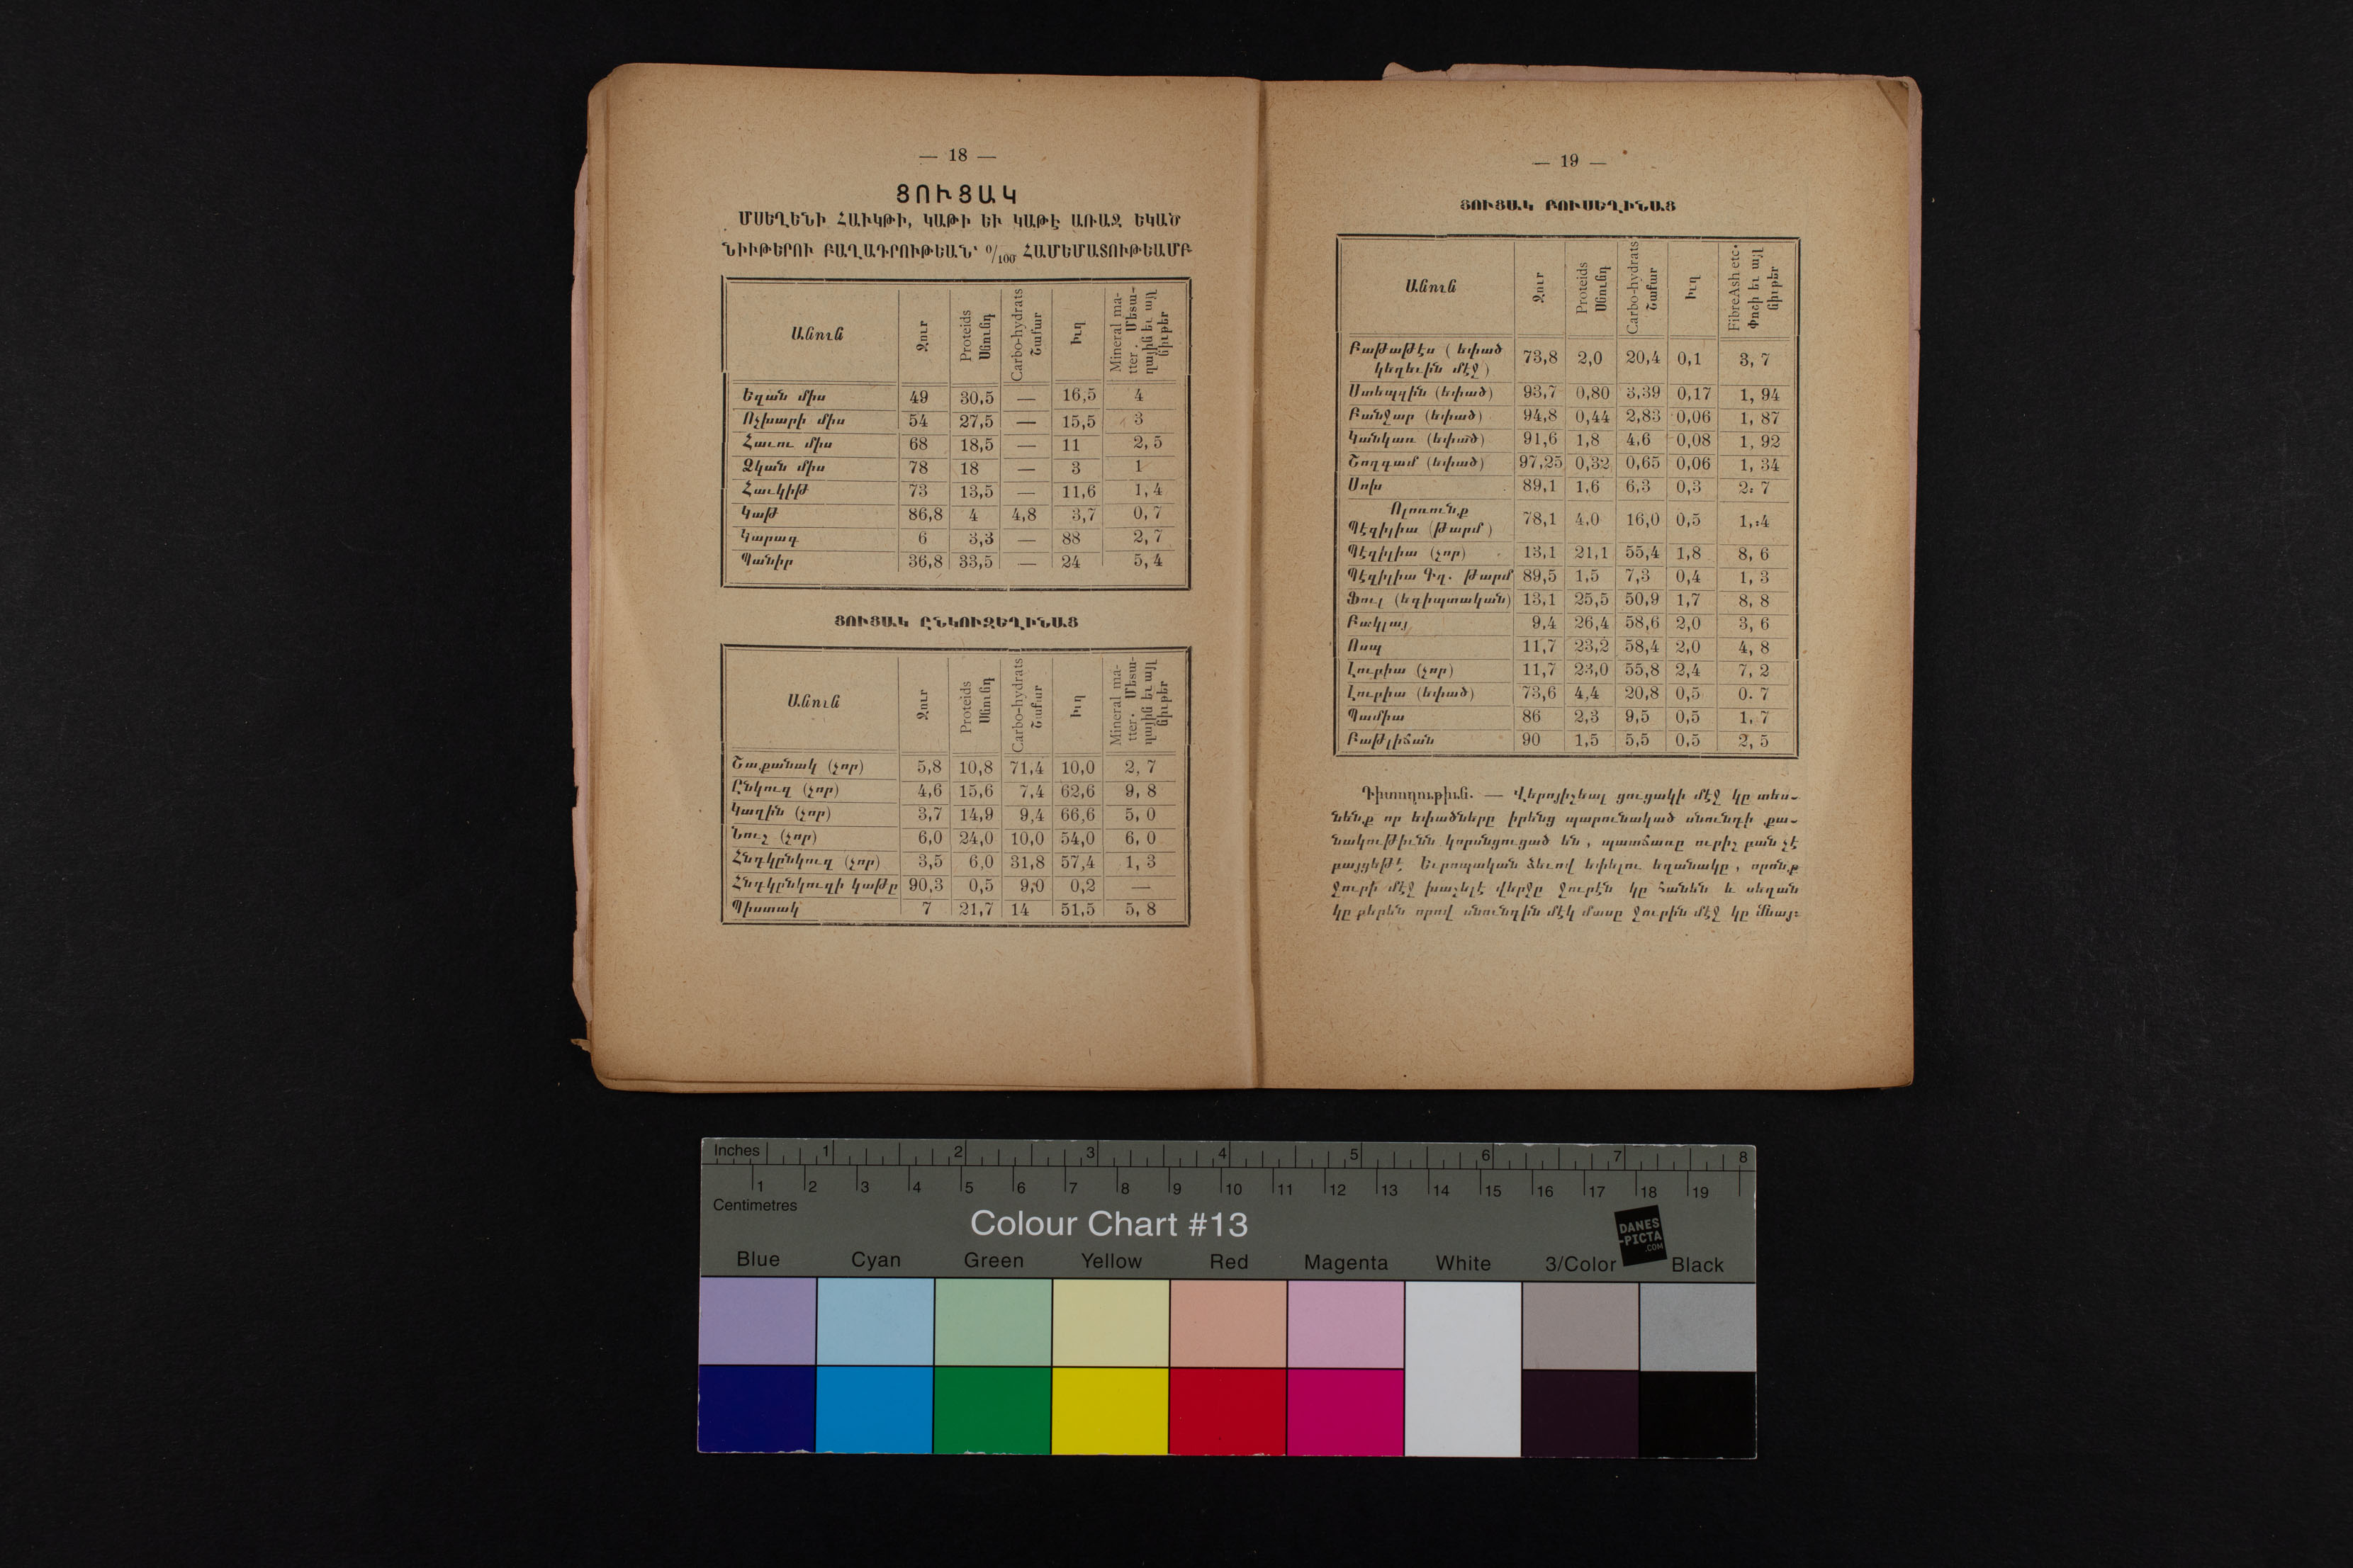 — 18 —
ՑՈՒՑԱԿ
ՄՍԵՂԵՆԻ ՀԱՒԿԹԻ, ԿԱԹԻ ԵՒ ԿԱԹԷ ԱՌԱՋ ԵԿԱԾ
ՆԻՒԹԵՐՈՒ ԲԱՂԱԴՐՈՒԹԵԱՆ՝ 0/100 ՀԱՄԵՄԱՏՈՒԹԵԱՄԲ
Անուն Ջուր Proteids Սնունդ Carbo-hydrats Շաքար Իւղ Mineral ma-tter. Մետա-ղային եւ այլ նիւթեր
Եզան միս 49 30,5 — 16,5 4
Ոչխարի միս 54 27,5 — 15,5 3
Հաւու միս 68 18,5 — 11 2,5
Ձկան միս 78 18 — 3 1
Հաւկիթ 73 13,5 — 11,6 1,4
Կաթ 86,8 4 4,8 3,7 0,7
Կարագ 6 3,3 — 88 2,7
Պանիր 36,8 33,5 — 24 5,4
ՑՈՒՑԱԿ ԸՆԿՈՒԶԵՂԻՆԱՑ
Անուն Ջուր Proteids Սնունդ Carbo-hydrats Շաքար Իւղ Mineral ma-tter. Մետա-ղային եւ այլ նիւթեր
Շաքանակ (չոր) 5,8 10,8 71,4 10,0 2,7
Ընկուզ (չոր) 4,6 15,6 7,4 62,6 9,8
Կաղին (չոր) 3,7 14,9 9,4 66,6 5,0
Նուշ (չոր) 6,0 24,0 10,0 54,0 6,0
Հնդկընկուզ (չոր) 3,5 6,0 31,8 57,4 1,3
Հնդկընկուզի կաթը 90,3 0,5 9,0 0,2 —
Պիստակ 7 21,7 14 51,5 5,8
— 19 —
ՑՈՒՑԱԿ ԲՈՒՍԵՂԻՆԱՑ
Անուն Ջուր Proteids Սնունդ Carbo-hydrats Շաքար Իւղ Fibre Ash etc. Փոշի եւ այլ նիւթեր
Բաթաթէս (եփած
կեղեւին մէջ) 73,8 2,0 20,4 0,1 3,7
Ստեպղին (եփած) 93,7 0,80 3,39 0,17 1,94
Բանջար (եփած) 94,8 0,44 2,83 0,06 1,87
Կանկառ (եփած) 91,6 1,8 4,6 0,08 1,92
Շողգամ (եփած) 97,25 0,32 0,65 0,06 1,34
Սոխ 89,1 1,6 6,3 0,3 2. 7
Ոլոռունք
Պէզիլիա (թարմ) 78,1 4,0 16,0 0,5 1,4
Պէզիլիա (չոր) 13,1 21,1 55,4 1,8 8,6
Պէզիլիա Գղ. թարմ 89,5 1,5 7,3 0,4 1,3
Ֆուլ (եգիպտական) 13,1 25,5 50,9 1,7 8,8
Բակլայ 9,4 26,4 58,6 2,0 3,6
Ոսպ 11,7 23,2 58,4 2,0 4,8
Լուբիա (չոր) 11,7 23,0 55,8 2,4 7,2
Լուբիա (եփած) 73,6 4,4 20,8 0,5 0. 7
Պամիա 86 2,3 9,5 0,5 1,7
Բաթլիճան 90 1,5 5,5 0,5 2,5
Դիտողութիւն. — Վերոյիշեալ ցուցակի մէջ կը տես-
նենք որ եփածները իրենց պարունակած սնունդի քա-
նակութիւնն կորսնցուցած են, պատճառը ուրիշ բան չէ
բայցեթէ Եւրոպական ձեւով եփելու եղանակը, որոնք
ջուրի մէջ խաշելէ վերջը ջուրէն կը հանեն և սեղան
կը բերեն որով սնունդին մէկ մասը ջուրին մէջ կը մնայ:
Inches 1 2 3 4 5 6 7 8
1 2 3 4 5 6 7 8 9 10 11 12 13 14 15 16 17 18 19
Centimetres
Colour Chart #13
DANES
-PICTA
.COM
Blue Cyan Green Yellow Red Magenta White 3/Color Black